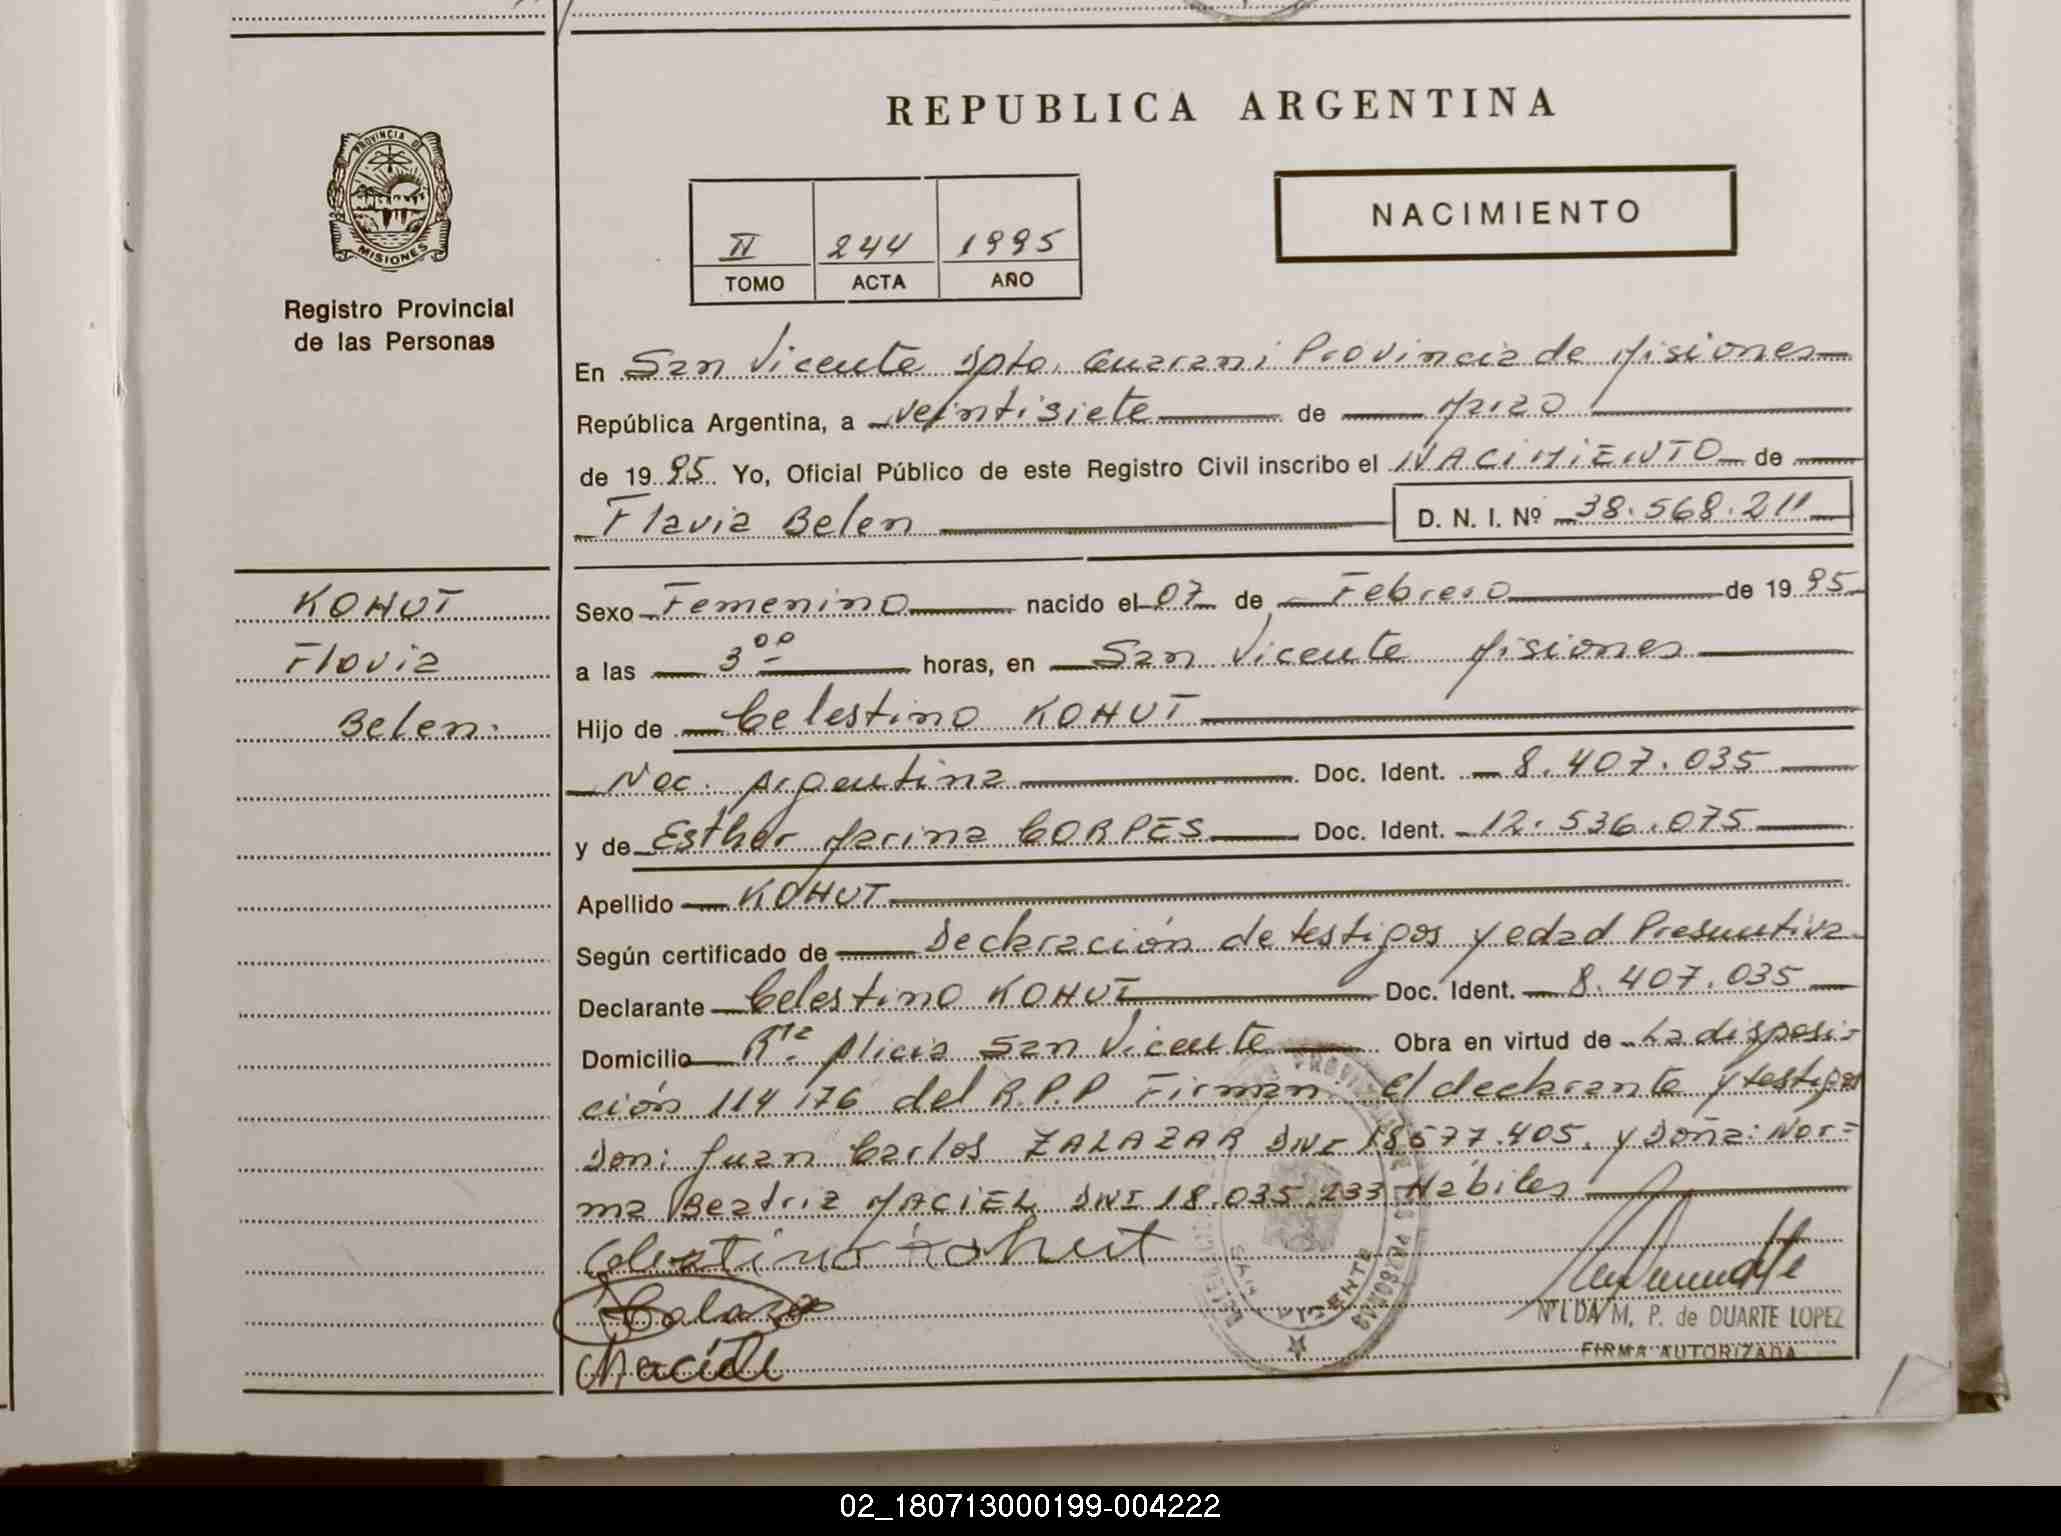 REPUBLICA ARGENTINA
PROVINCIA DE MISIONES
Registro Provincial
de las Personas
II 244 1995
TOMO ACTA AÑO
NACIMIENTO
En San Vicente Dpto. Guarani Provincia de Misiones
República Argentina, a veintisiete de Marzo
de 1995 Yo, Oficial Público de este Registro Civil inscribo el NACIMIENTO de
Flavia Belen D. N. I. Nº 38.568.211
KOHUT
Flavia
Belen.
Sexo Femenino nacido el 07 de Febrero de 1995
a las 3 00 horas, en San Vicente Misiones
Hijo de Celestino KOHUT
Nac. Argentina Doc. Ident. 8.407.035
y de Esther Marina CORPES Doc. Ident. 12.536.075
Apellido KOHUT
Según certificado de Declaración de testigos y edad Presuntiva
Declarante Celestino KOHUT Doc. Ident. 8.407.035
Domicilio Rta. Alicia San Vicente Obra en virtud de La disposi-
ción 114 176 del R.P.P Firman El declarante y testigos
Don: Juan Carlos ZALAZAR DNI 18.577.405. y Doña: Nor=
ma Beatriz MACIEL DNI 18.035.233 Habiles
Celestino Kohut
Maciel
SAN VICENTE
NILDA M. P. de DUARTE LOPEZ
FIRMA AUTORIZADA
02_180713000199-004222